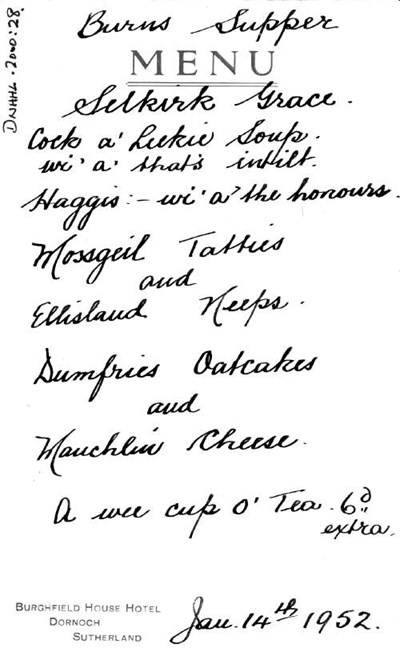 Burns Supper
MENU
Selkirk Grace.
Cock a' Leekie Soup.
wi' a' that's intilt.
Haggis:- wi' a' the honours.
Mossgeil Tatties
and
Ellisland Neeps.
Dumfries Oatcakes
and
Mauchlin Cheese.
A wee cup o' Tea. 6d
extra.
BURGHFIELD HOUSE HOTEL
DORNOCH
SUTHERLAND
Jan. 14th 1952.